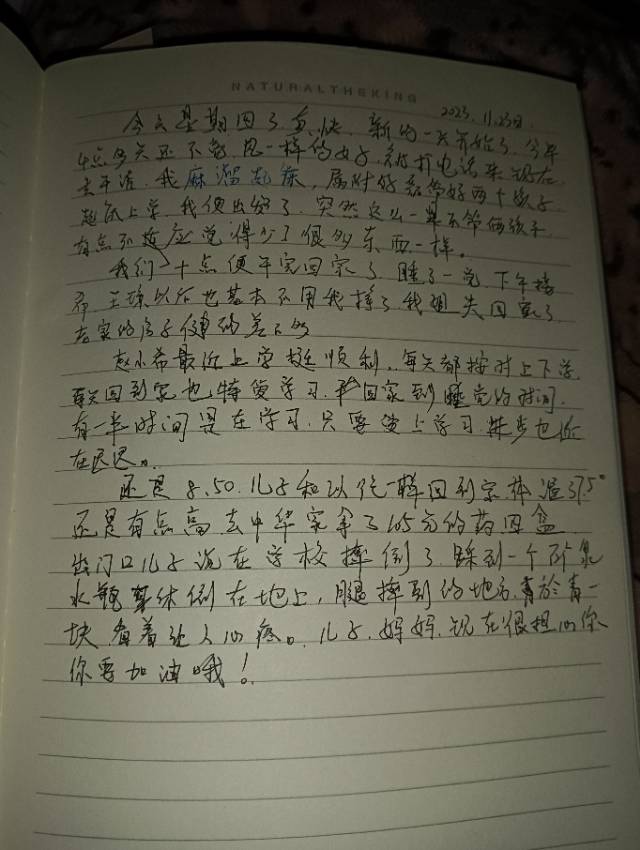 NATURALTHEKING
2023.11.23日.
今天星期四了真快.新的一天开始了.今早
4点多天还不亮 打电话来现在
去干活.我麻溜起床,属咐好 带好两个孩子
起床上学.我便出发了.突然这么一早不带俩孩子
有点不适应觉得少了很多东西一样。
我们十点便干完回家了.睡了一觉.下午接
希 以后也基本不用我接了.我姐夫回家了
在家的房子
赵小希最近上学挺顺利.每天都按时上下学.
每天回到家也特爱学习.平回家到睡觉的时间.
有一半时间是在学习.只要爱上学习 进步也你
在迟迟。
还是8.50.儿子和以往一样回到家体温37.5°
还是有点高.去中华家拿了105元的药四盒
出门口儿子说在学校摔倒了.踩到一个矿泉
水瓶 整体倒在地上,腿摔到的地方.青於青一
块.看着让人心疼。儿子.妈妈.现在很担心你
你要加油哦!